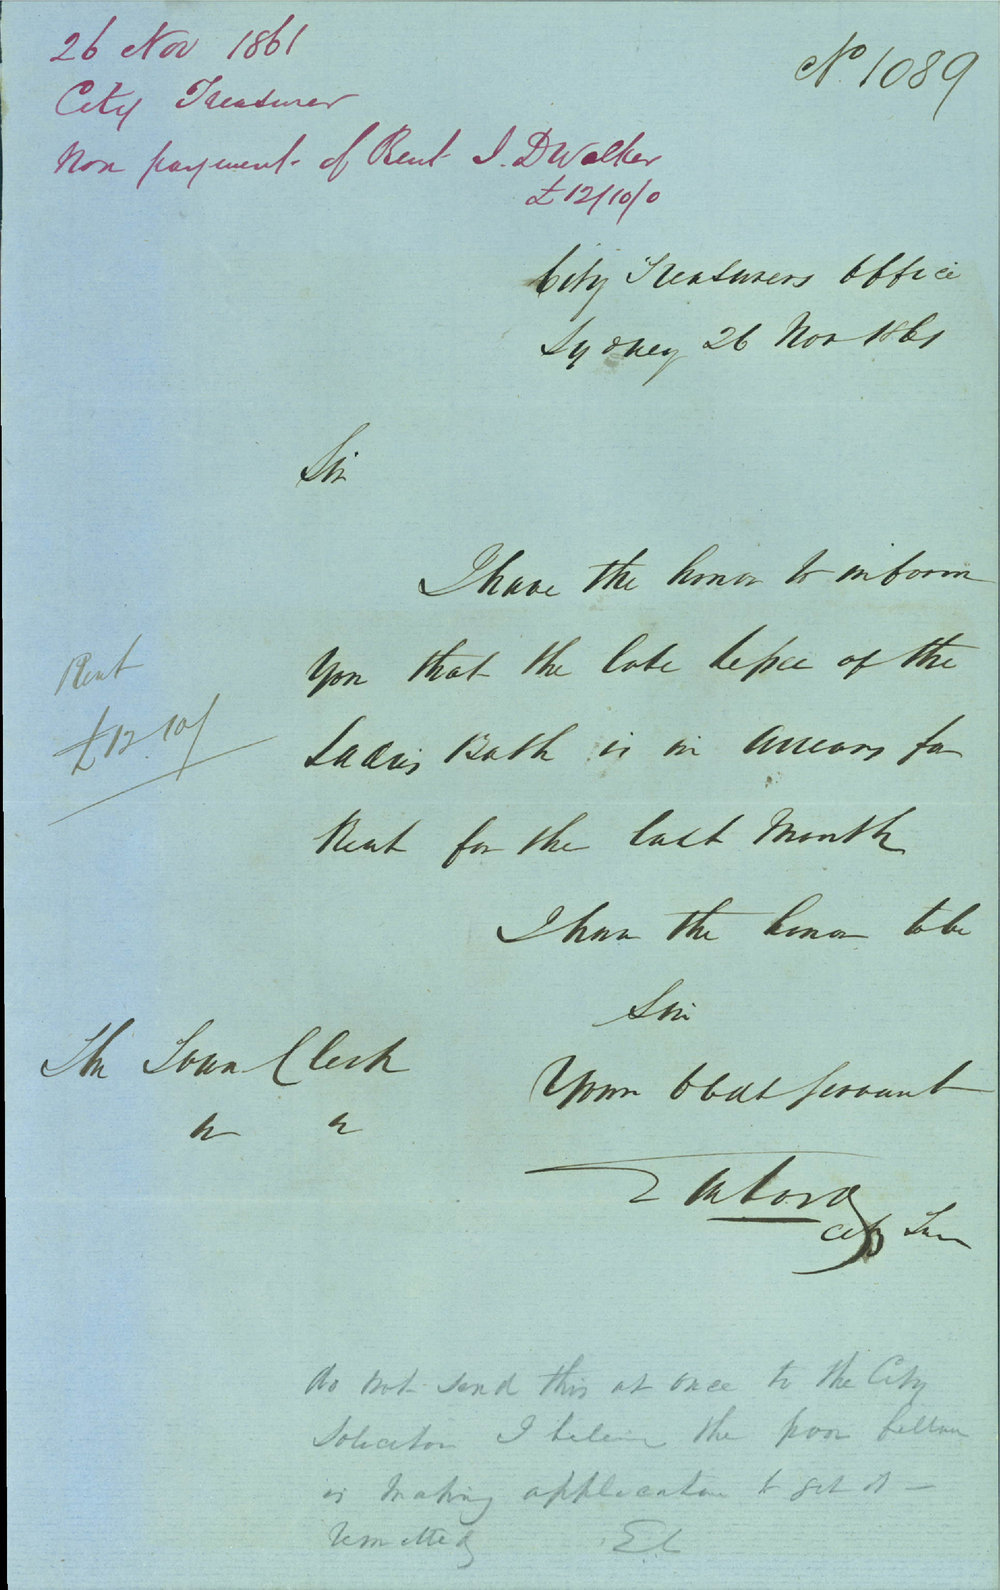 26 Nov 1861
City Treasurer
Non payment of Rent J. D Walker
£12/10/0
No. 1089
City Treasurers Office
Sydney 26 Nov 1861
Sir
I have the honor to inform
you that the late lessee of the
Ladies Bath is in arrears for
Rent for the last Month
Rent
£12.10/
I have the honor to be
Sir
Your Obedt servant
City Trea
The Town Clerk
" "
do not send this at once to the City
Solicitor I believe the poor fellow
is making application to get it -
remitted